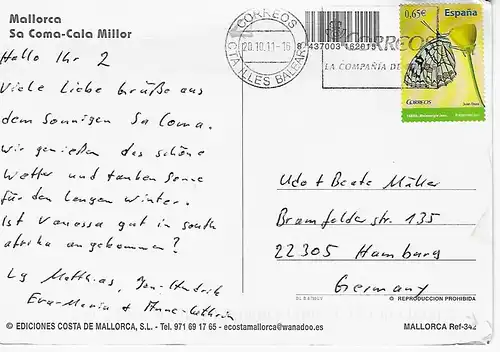 Mallorca
Sa Coma-Cala Millor
Hallo Ihr 2
Viele Liebe Grüße aus
dem Sonnigen Sa Coma.
Wir genießen das schöne
Wetter und tanken Sonne
für den langen Winter.
Ist Vanessa gut in South
afrika angekommen?
Lg Matthias, Jan-Hendrik
Eva-Maria + Anne-Kathrin
CORREOS
20.10.11-16
CTA ILLES BALEARS
8437003162015
CORREOS
LA COMPAÑÍA DE
0,65€ España
CORREOS
Udo + Beate Müller
Bramfelder str. 135
22305 Hamburg
Germany
© REPRODUCCION PROHIBIDA
© EDICIONES COSTA DE MALLORCA, S.L. - Tel. 971 69 17 65 - ecostamallorca@wanadoo.es
MALLORCA Ref-342